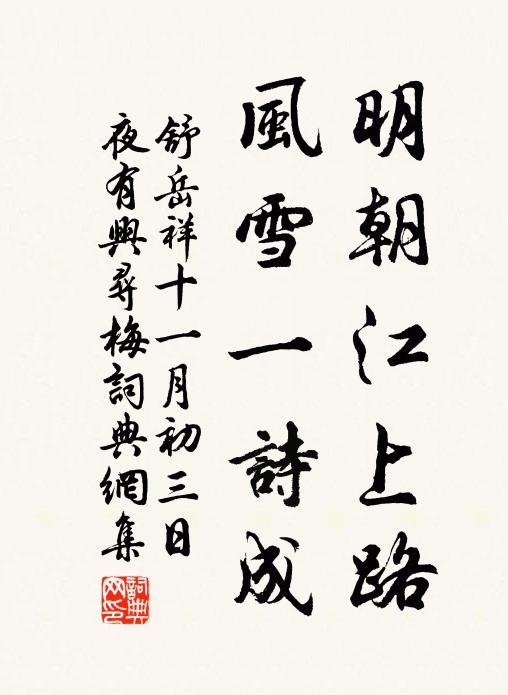 明朝江上路
風雪一詩成
舒岳祥十一月初三日
夜有興尋梅詞典網集
詞典
網印